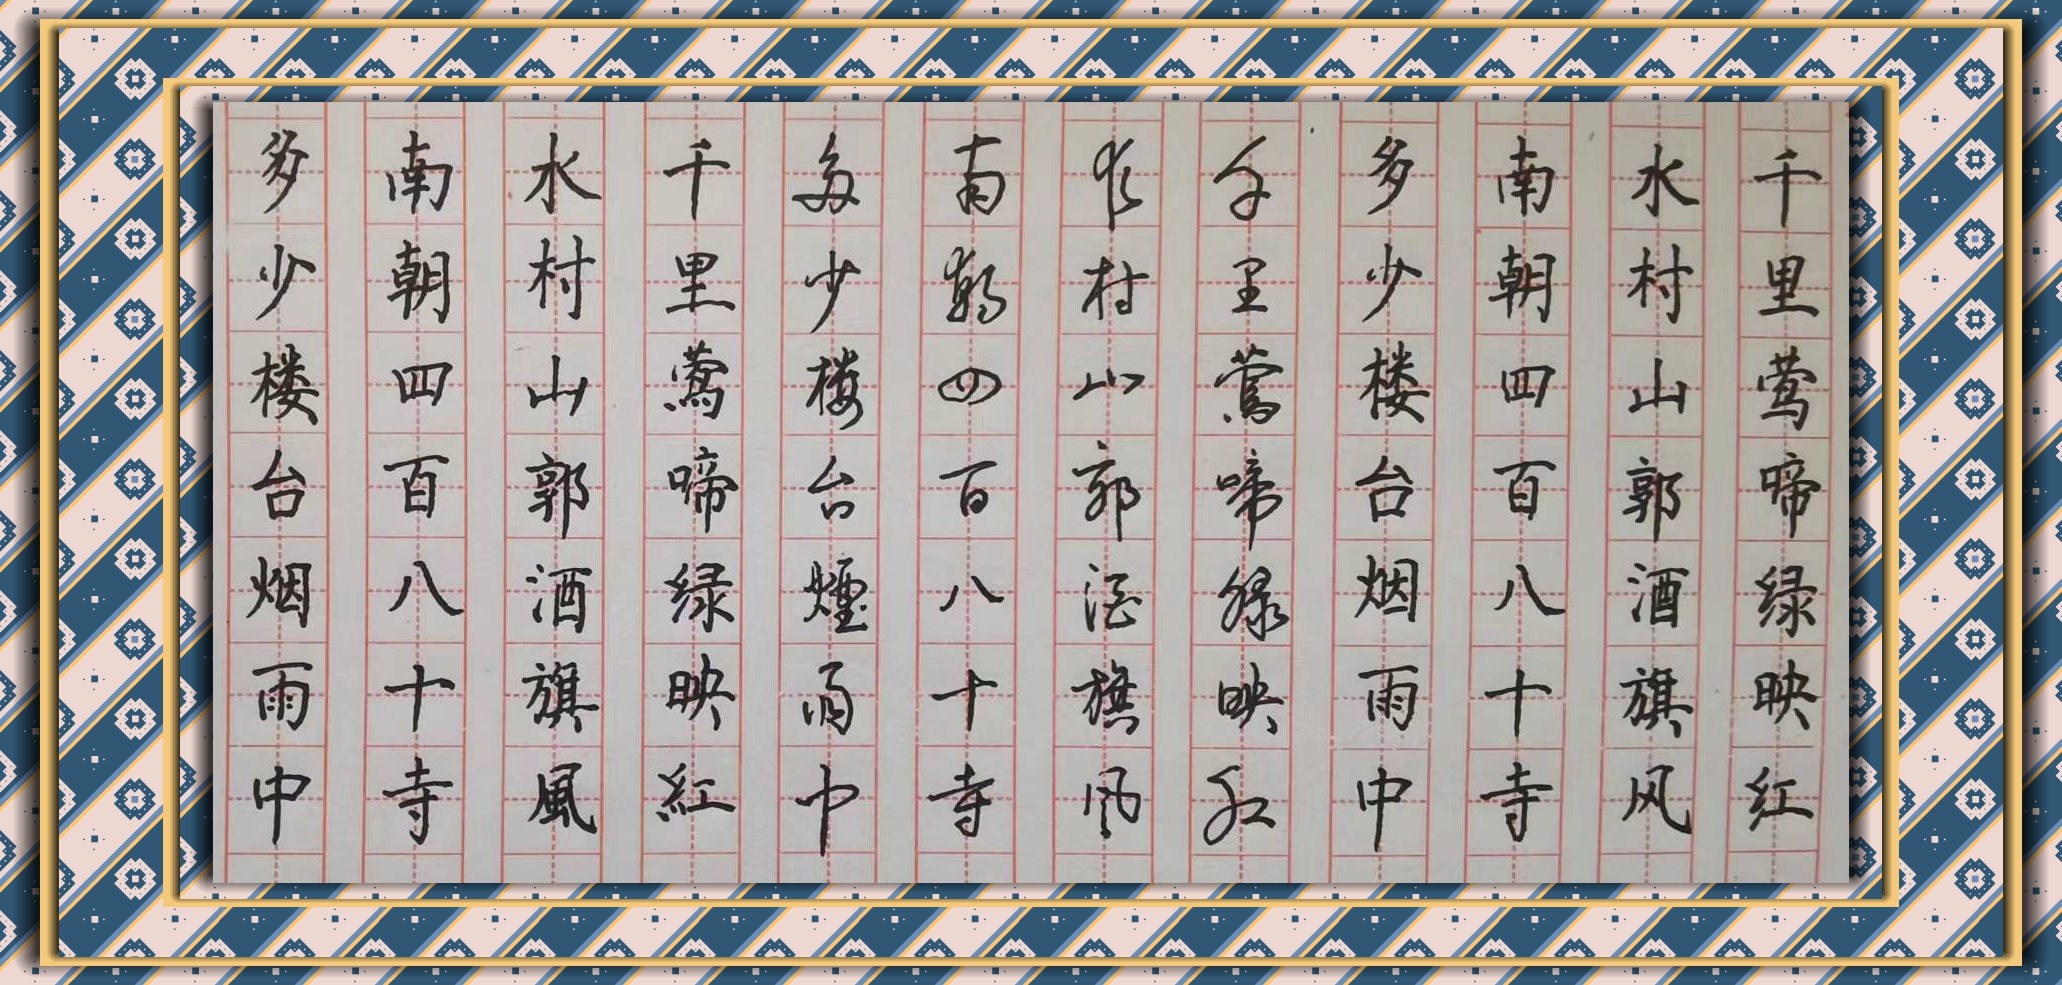 千里莺啼绿映红
水村山郭酒旗风
南朝四百八十寺
多少楼台烟雨中
千里鶯啼绿映红
水村山郭酒旗风
南朝四百八十寺
多少楼台煙雨中
千里鶯啼绿映紅
水村山郭酒旗風
南朝四百八十寺
多少楼台烟雨中